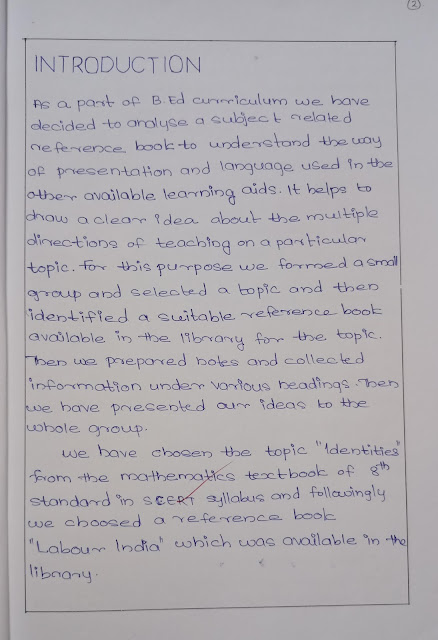 2
INTRODUCTION
As a part of B.Ed curriculum we have
decided to analyse a subject related
reference book to understand the way
of presentation and language used in the
other available learning aids. It helps to
draw a clear idea about the multiple
directions of teaching on a particular
topic. For this purpose we formed a small
group and selected a topic and then
identified a suitable reference book
available in the library for the topic.
Then we prepared notes and collected
information under various headings. Then
we have presented our ideas to the
whole group.
We have chosen the topic "Identities"
from the mathematics textbook of 8th
standard in SCERT syllabus and followingly
we choosed a reference book
"Labour India" which was available in the
library.